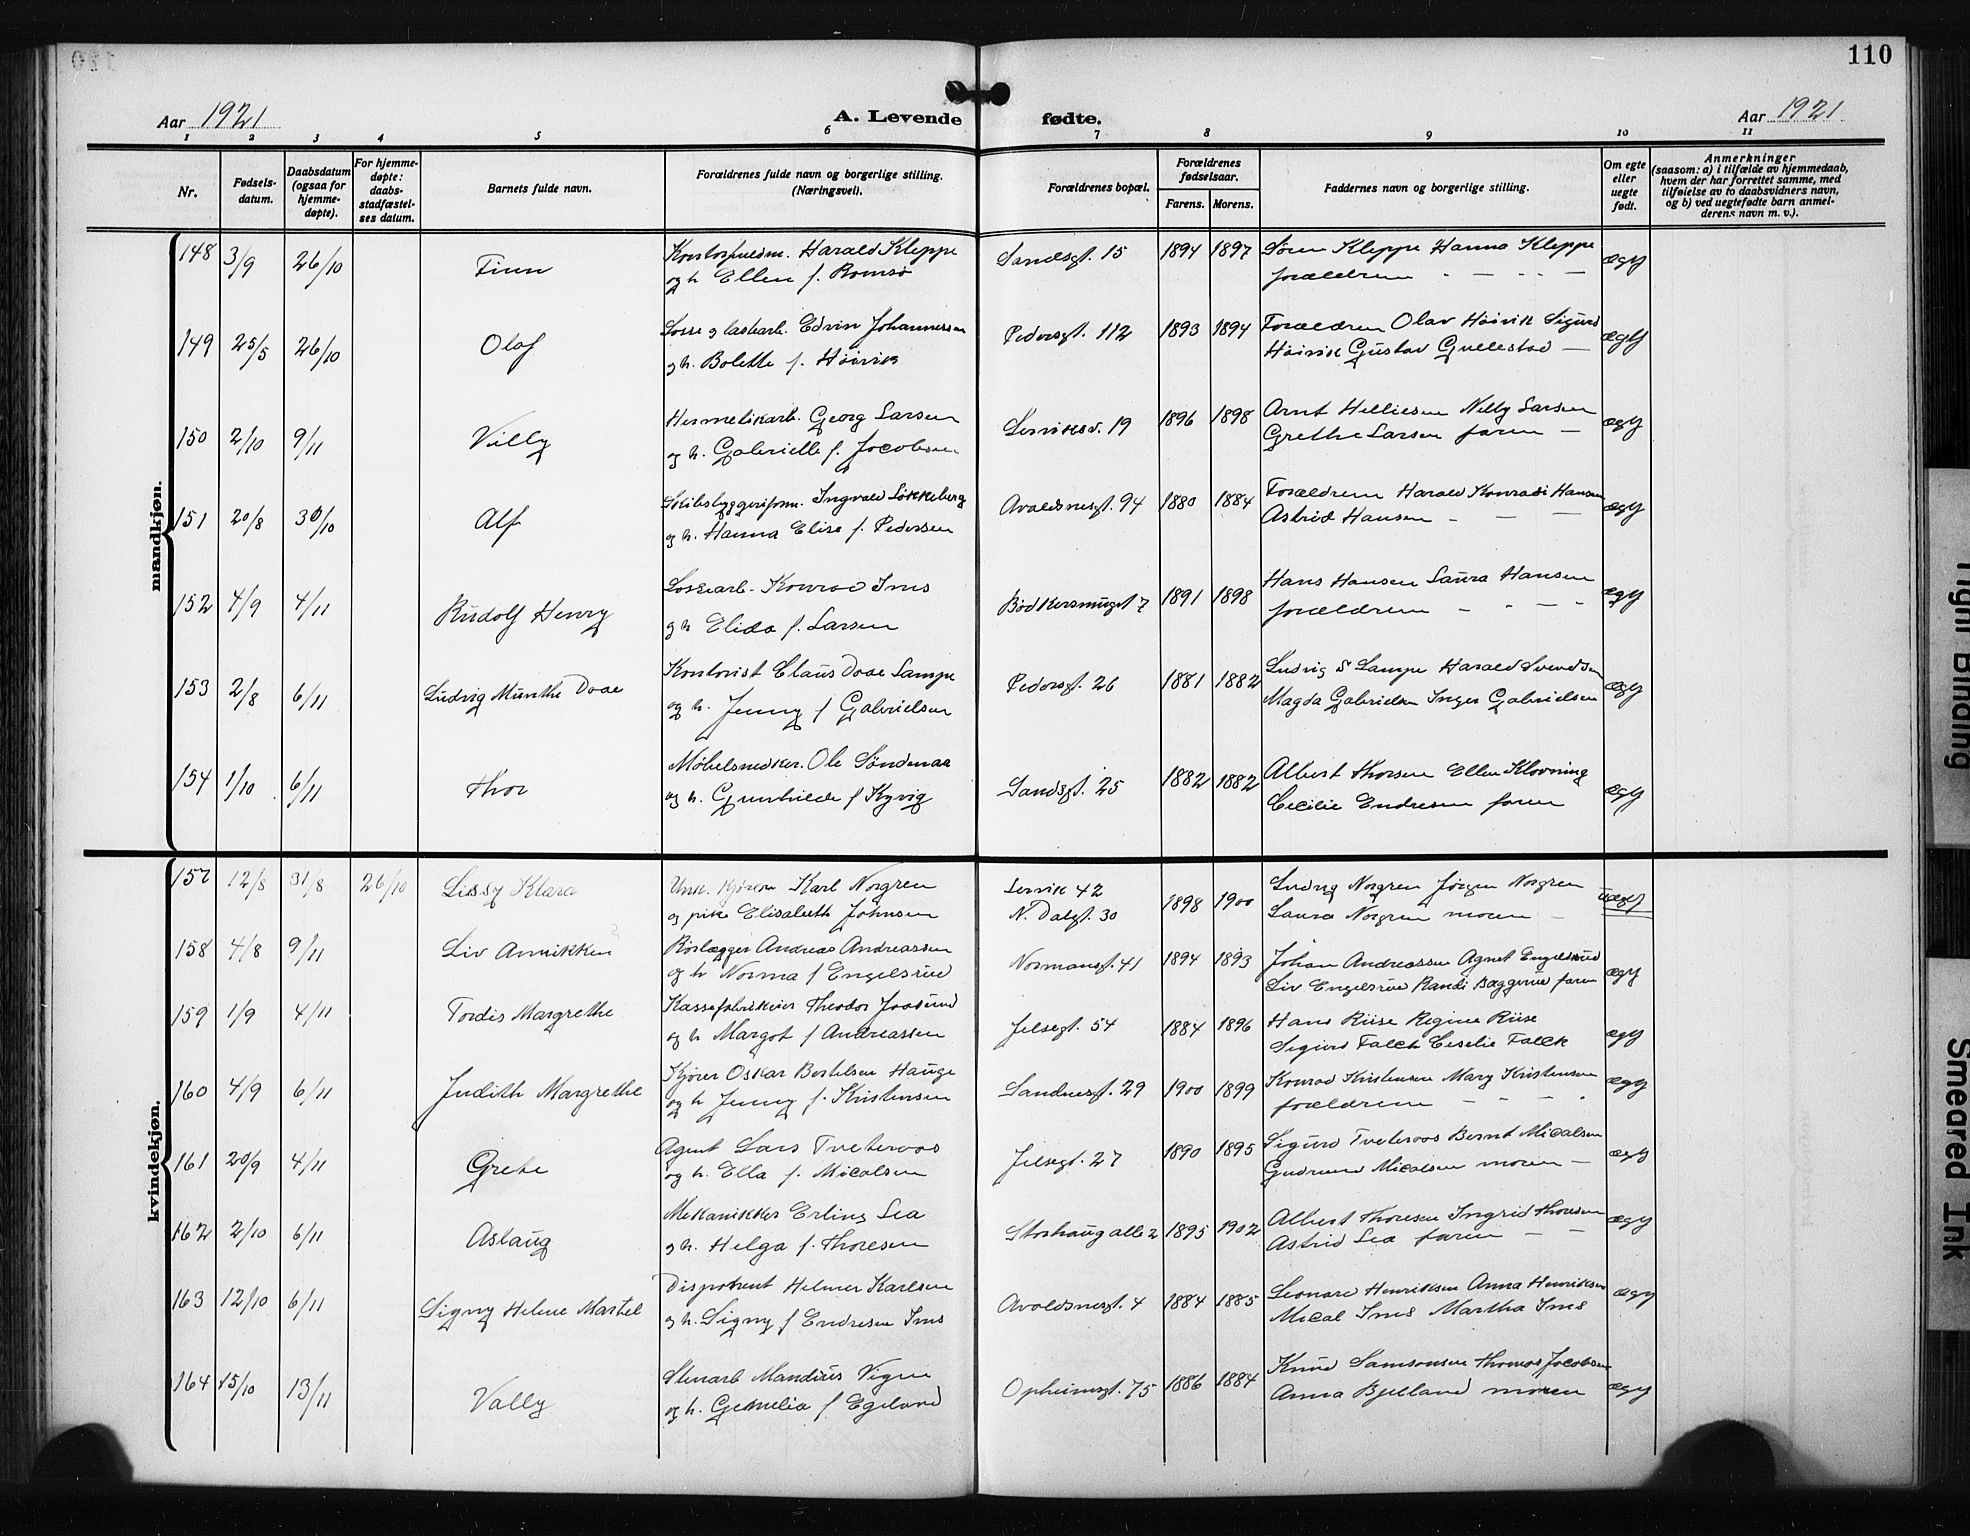 110
Aar 1921
A. Levende fødte.
Aar 1921
1 2 3 4 5 6 7 8 9 10 11
Nr.
Fødsels-
datum.
Daabsdatum
(ogsaa for
hjemme-
døpte).
For hjemme-
døpte:
daabs-
stadfæstel-
ses datum.
Barnets fulde navn.
Forældrenes fulde navn og borgerlige stilling.
(Næringsvei).
Forældrenes bopæl.
Forældrenes
fødselsaar.
Farens. Morens.
Faddernes navn og borgerlige stilling.
Om egte
eller
uegte
født.
Anmerkninger
(saasom: a) i tilfælde av hjemmedaab,
hvem der har forrettet samme, med
tilføielse av to daabsvidners navn,
og b) ved uegtefødte barn anmel-
derens navn m. v.).
mandkjøn.
148 3/9 26/10 Finn
Kontorfuldm. Harald Kleppe
og h. Ellen f. Romsø
Sandsgt. 15 1894 1897
Søren Kleppe Hanna Kleppe
forældrene
ægt
149 25/5 26/10 Olaf
Losse g lastearb. Edvin Johannessen
og h. Bolette f. Høivik
Pedersgt. 112 1893 1894
Forældrene Olav Høivik Sigurd
Høivik Gustav Gullestad
ægt
150 2/10 9/11 Villy
Hermetikarb. Georg Larsen
og h. Gabrielle f. Jacobsen
Lerviksv. 19 1896 1898
Arnt Helliesen Nelly Larsen
Grethe Larsen faren
ægt
151 20/8 30/10 Alf
Skibsbyggeriform. Ingvald Løkkeberg
og h. Hanna Elise f. Pedersen
Avaldsnesgt. 94 1880 1884
Forældrene Harald Konradi Hansen
Astrid Hansen
ægt
152 4/9 4/11 Rudolf Henry
Lossearb. Konrad Ims
og h. Elida f. Larsen
Bødkersmuget 7 1891 1898
Hans Hansen Laura Hansen
forældrene
ægt
153 2/8 6/11 Ludvig Munthe Doae
Kontorist Claus Doae Lampe
og h. Jenny f Gabrielsen
Pedersgt. 26 1881 1882
Ludvig S Lampe Harald Svendsen
Magda Gabrielsen Inger Gabrielsen
ægt
154 1/10 6/11 Thor
Møbelsnedker. Ole Søndenaa
og h. Gunhilde f Kyvig
Sandsgt. 25 1882 1882
Albert Thorsen Ellen Klovning
Cecilie Endresen faren
ægt
kvindekjøn.
157 12/8 31/8 26/10 Lissy Klara
Unk. kjører Karl Norgren
og pike Elisabeth Johnsen
Lervik 42
N. Dalgt. 30
1898 1900
Ludvig Norgren Jørgen Norgren
Laura Norgren moren
uægt
158 4/8 9/11 Liv Annikken
Rørlægger Andreas Andreassen
og h Norma f Engelsrud
Normansgt. 41 1894 1893
Johan Andreassen Agnet Engelsrud
Liv Engelsrud Randi Baggerud faren
ægt
159 1/9 4/11 Tordis Margrethe
Kassefabrikeier Theodor Joasund
og h Margot f Andreassen
Jelsegt. 54 1884 1896
Hans Riise Regine Riise
Sigurd Falck Ceselie Falck
ægt
160 4/9 6/11 Judith Margrethe
Kjører Oskar Bertelsen Hauge
og h Jenny f. Kristensen
Sandnesgt. 29 1900 1899
Konrad Kristensen Mary Kristensen
forældrene
ægt
161 20/9 4/11 Grete
Agent Lars Tveteraas
og h. Ella f. Micalsen
Jelsegt. 27 1890 1895
Sigurd Tveteraas Bernt Micalsen
Gudrund Micalsen moren
ægt
162 2/10 6/11 Aslaug
Mekanikker Erling Lea
og h. Helga f. Thoresen
Storhaug alle 2 1895 1902
Albert Thoresen Ingrid Thoresen
Astrid Lea faren
ægt
163 12/10 6/11 Signy Helene Martel
Disponent Helmer Karlsen
og h. Signy f Endresen Ims
Avaldsnesgt. 4 1884 1885
Leonard Henriksen Anna Henriksen
Mical Ims Martha Ims
ægt
164 15/10 13/11 Vally
Stenarb Mandius Vigne
og h. Gemelia f Egeland
Opheimsgt. 75 1886 1884
Knud Samsonsen Thomas Jacobsen
Anna Bjelland moren
ægt
Tight Binding
Smeared Ink